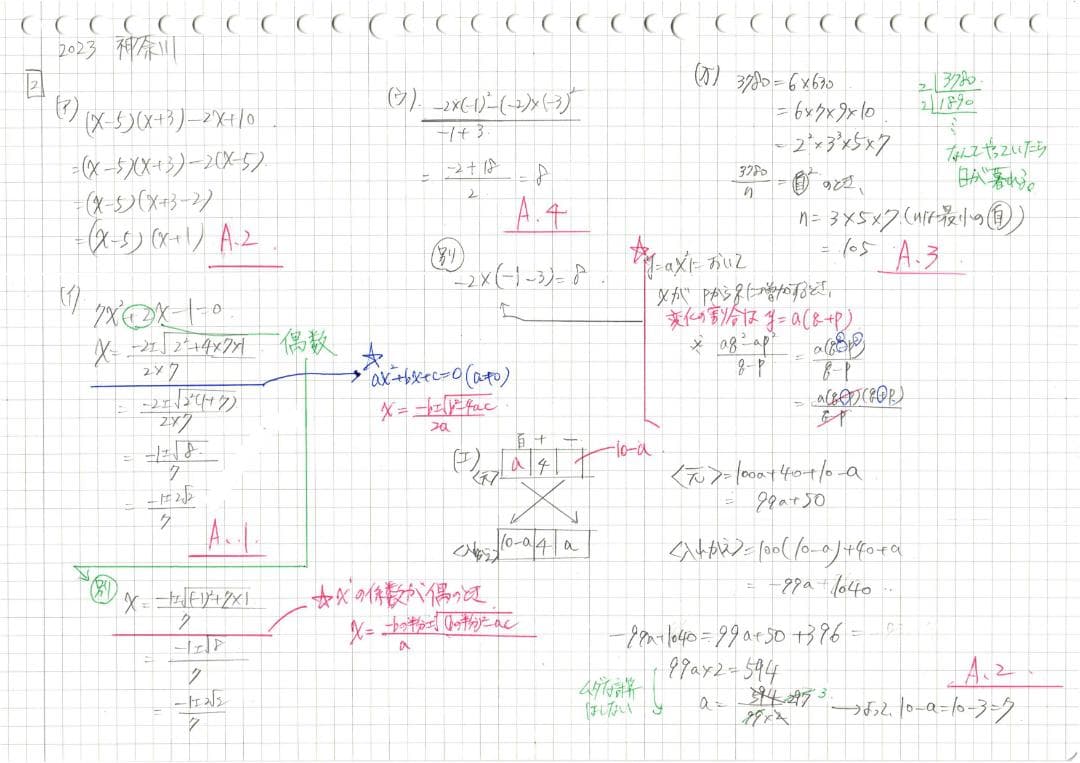 2023 神奈川
2
(ア) (x-5)(x+3)-2x+10
=(x-5)(x+3)-2(x-5)
=(x-5)(x+3-2)
=(x-5)(x+1) A.2
(イ)
7x²+2x-1=0
偶数
x=(-2±√(2²+4×7×1))/(2×7)
=(-2±√(2²(1+7)))/(2×7)
=(-1±√8)/7
=(-1±2√2)/7
A.1
☆ ax²+bx+c=0 (a≠0)
x=(-b±√(b²-4ac))/2a
別
x=(-1±√((-1)²+7×1))/7
=(-1±√8)/7
=(-1±2√2)/7
☆xの係数が偶のとき
x=(-bの半分±√((bの半分)²-ac))/a
(ウ) (-2×(-1)²-(-2)×(-3)²)/(-1+3)
=(-2+18)/2=8
A.4
別
-2×(-1-3)=8
☆ y=ax²において
xがpからqに増加するとき、
変化の割合は y=a(q+p)
※ (aq²-ap²)/(q-p)=a(q²-p²)/(q-p)
=a(q-p)(q+p)/(q-p)
(エ)
百 十 一
<元> a 4 10-a
<入れかえ> 10-a 4 a
<元>=100a+40+10-a
=99a+50
<入れかえ>=100(10-a)+40+a
=-99a+1040
-99a+1040=99a+50+396
99a×2=594
ムダな計算はしない
a=594/(99×2) 297 3
→よって、10-a=10-3=7
A.2
(オ) 3780=6×630
=6×7×9×10
=2²×3³×5×7
3780/n=自²のとき、
n=3×5×7(nは最小の自)
=105 A.3
2 3780
2 1890
⋮
なんてやっていたら
日が暮れる。